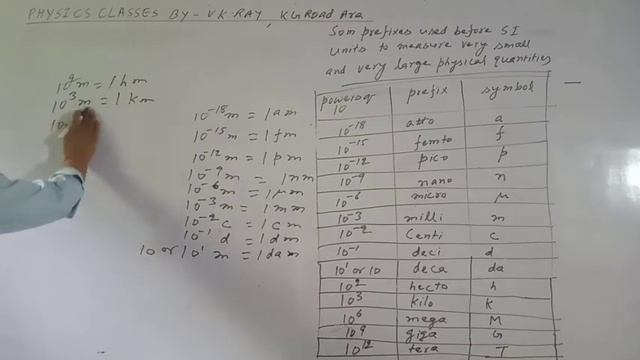 PHYSICS CLASSES BY - V K RAY, KG Road Ara
Som prefixes used before SI
units to measure very small
and very large physical quantities
10² m = 1 hm
10³ m = 1 km
10
10⁻¹⁸ m = 1 am
10⁻¹⁵ m = 1 fm
10⁻¹² m = 1 pm
10⁻⁹ m = 1 nm
10⁻⁶ m = 1 μm
10⁻³ m = 1 mm
10⁻² c = 1 cm
10⁻¹ d = 1 dm
10 or 10¹ m = 1 dam
powers of 10 prefix symbol
10⁻¹⁸ atto a
10⁻¹⁵ femto f
10⁻¹² pico p
10⁻⁹ nano n
10⁻⁶ micro μ
10⁻³ milli m
10⁻² Centi c
10⁻¹ deci d
10¹ or 10 deca da
10² hecto h
10³ kilo K
10⁶ mega M
10⁹ giga G
10¹² tera T